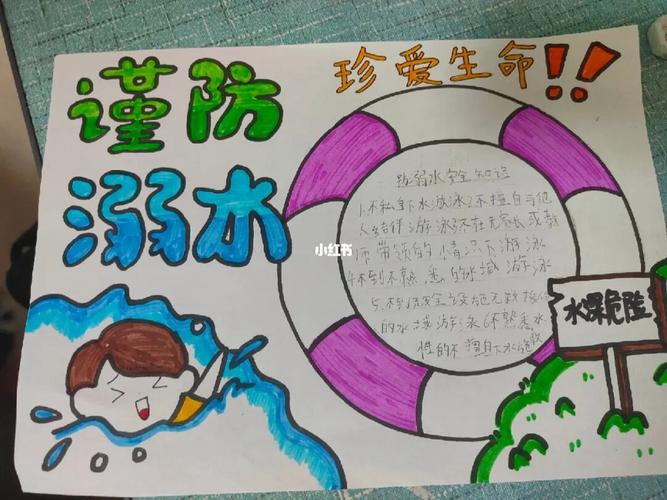 谨防
溺水
珍爱生命!!
防溺水安全知识
1.不私自下水游泳2.不擅自与他
人结伴游泳3.不在无家长或教
师带领的情况下游泳
4.不到不熟悉的水域游泳
5.不到无安全设施无救援人员
的水域游泳6.不熟悉水
性的不擅自下水施救
水深危险
小红书